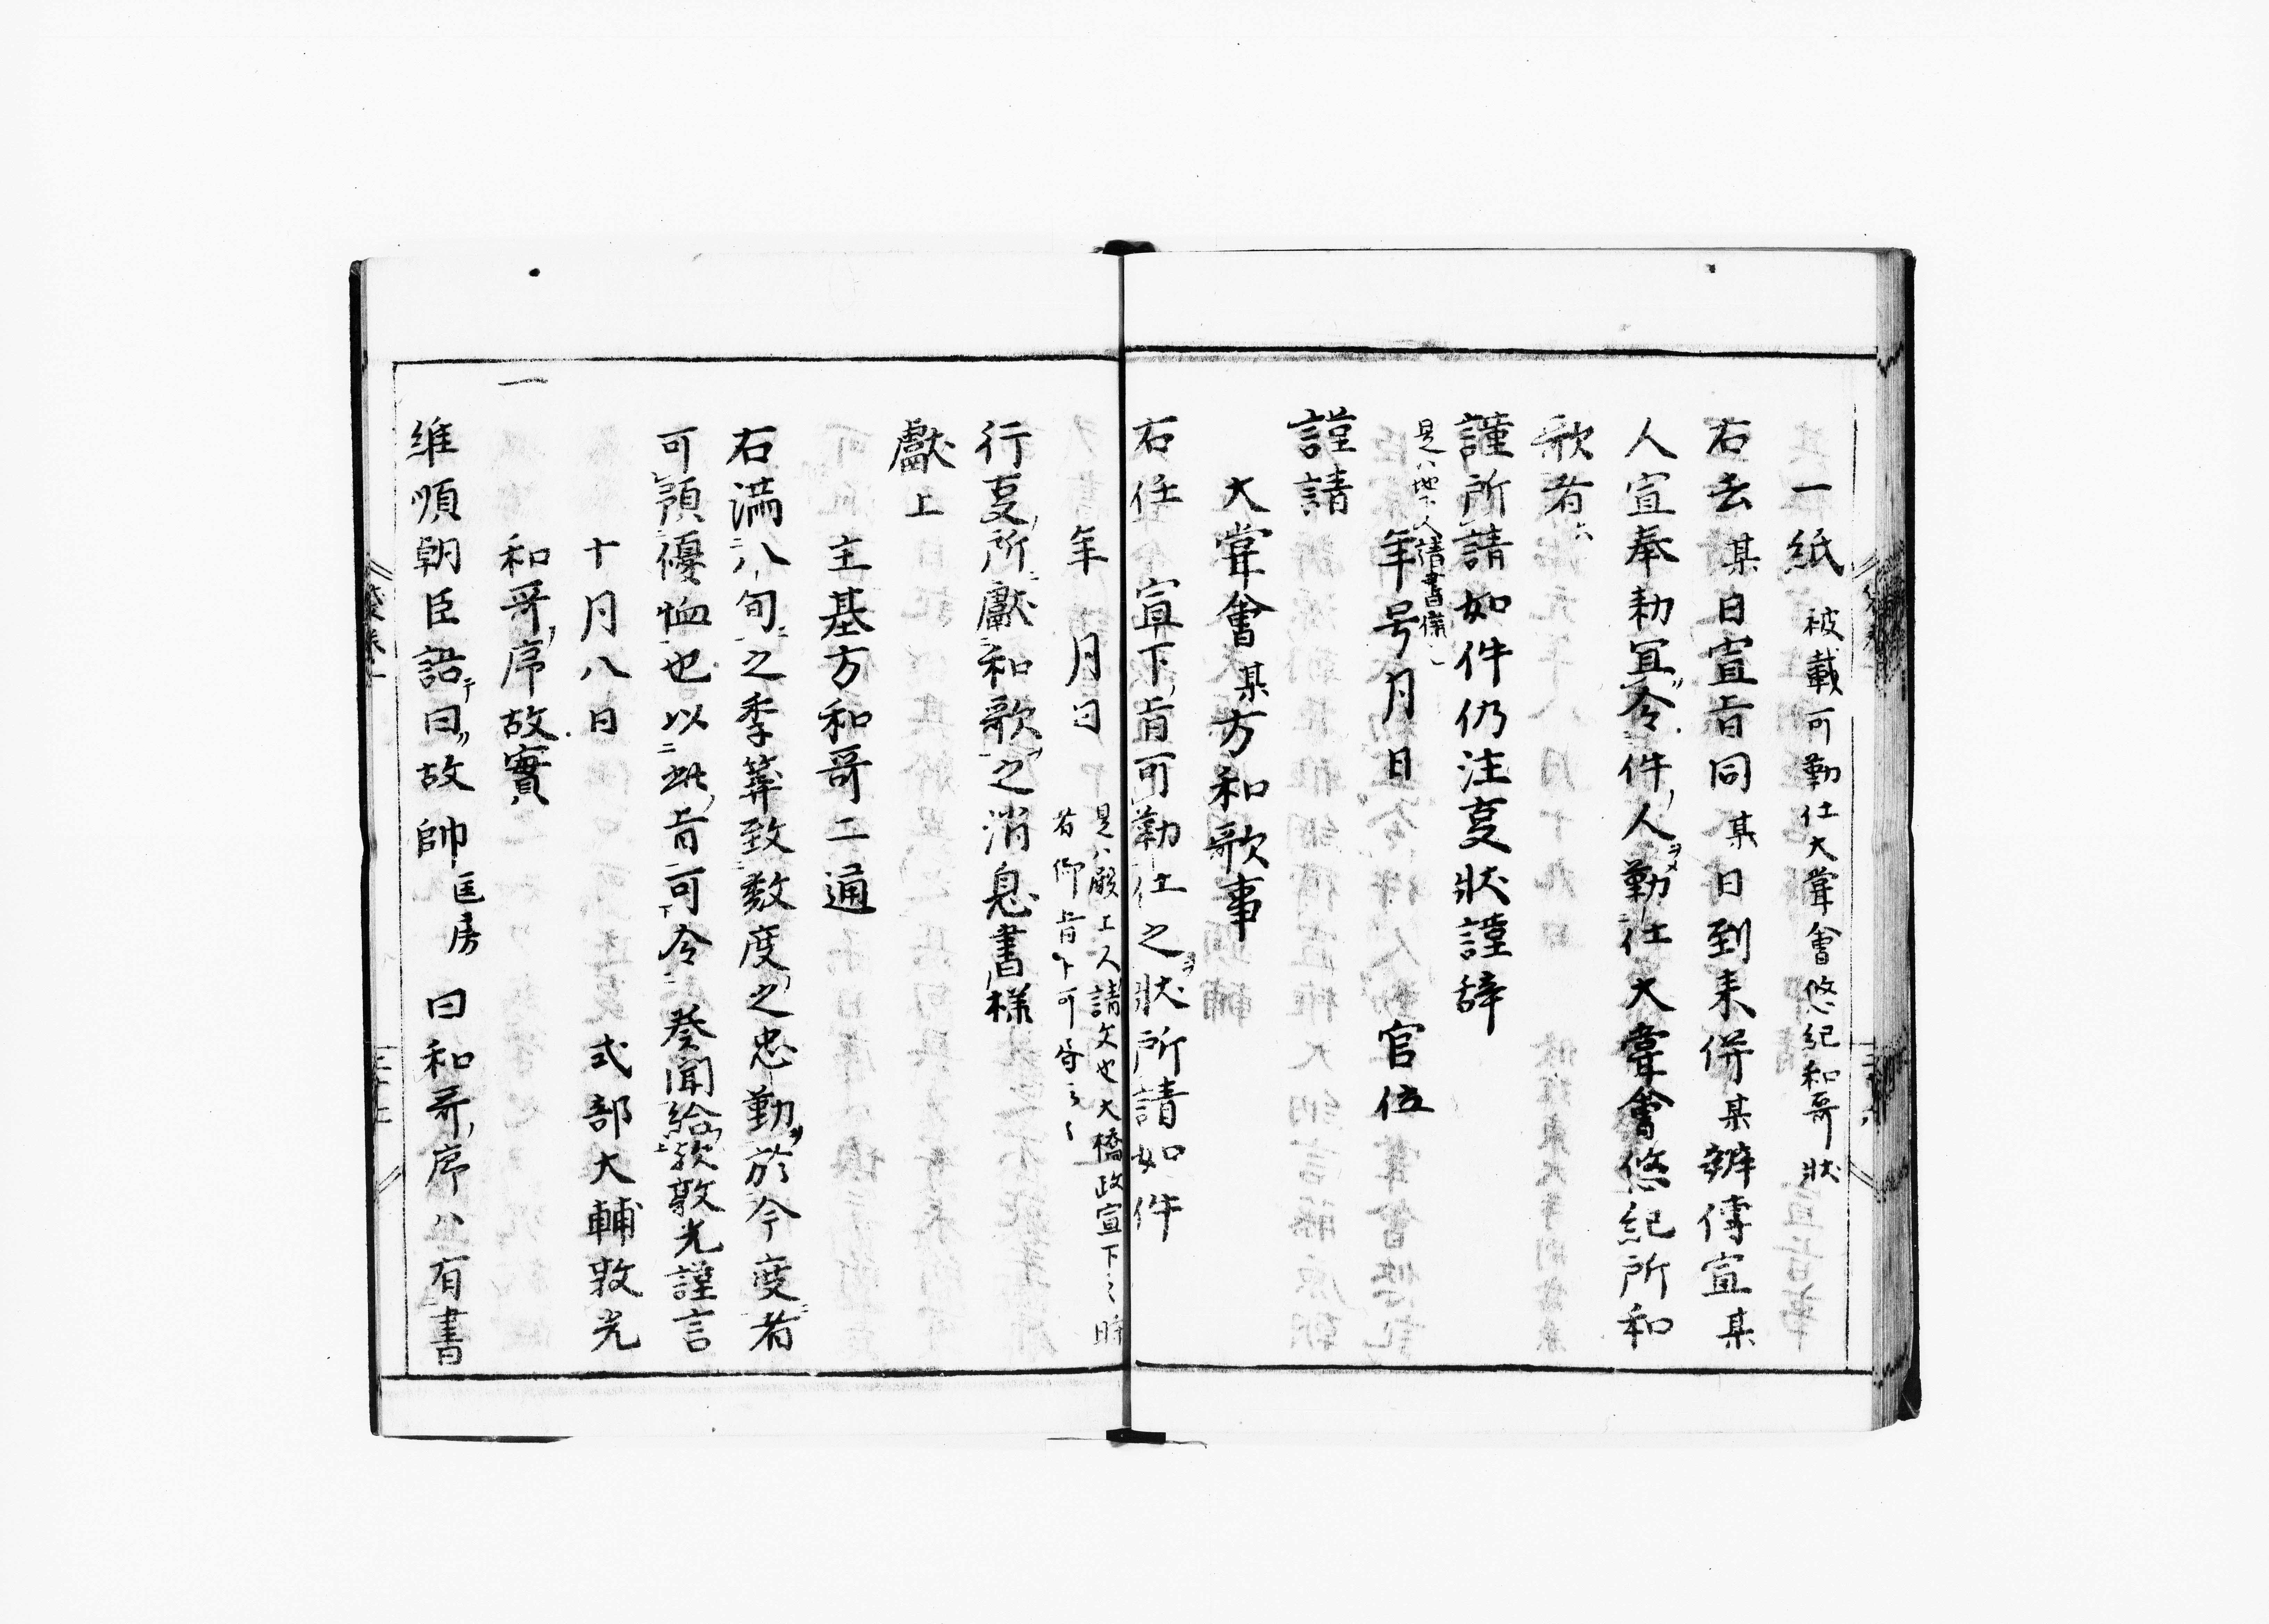 一紙 被載可勤仕大甞會悠紀和哥状
右去某日宣旨同某日到来併某辨傳宣某
人宣奉勅冝令件人ヲメ勤仕大甞會悠紀所和
歌者
謹所請如件仍注㕝状謹辞
是ハ地下人請書 年号月日 官位
謹請
大甞會某方和歌事
右任 宣下旨可勤仕之状所請如件
年 月日 是ハ殿上人請文也大橋政宣下之時
行㕝所獻和歌之消息書様
獻上
主基方和哥二通
右満八旬之季筭致数度之忠勤於今度者
可預優恤也以此旨可令 奏聞給歟敦光謹言
十月八日 式部大輔敦光
一 和哥序故實
維順朝臣語曰故帥匡房曰和哥序ハ有書